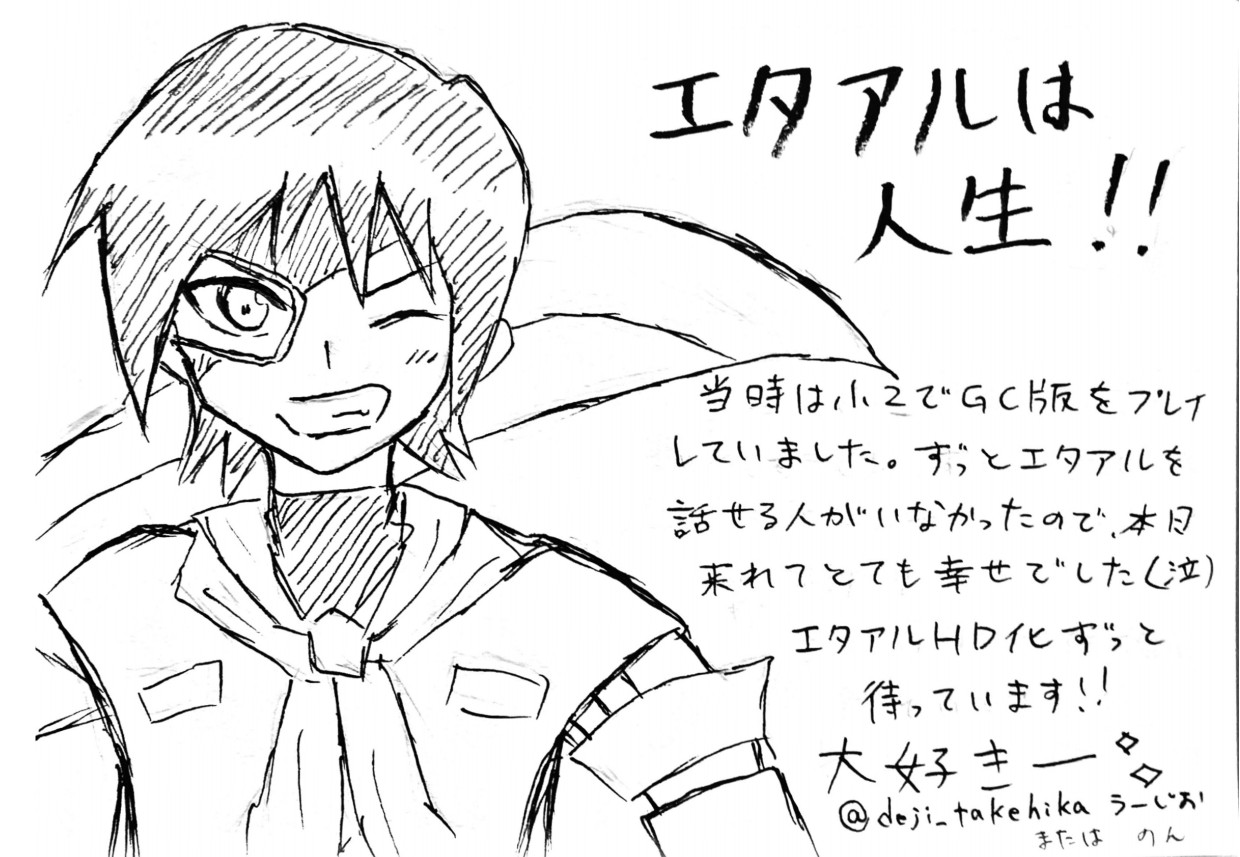 エタアルは
人生!!
当時は小2でGC版をプレイ
していました。ずっとエタアルを
話せる人がいなかったので、本日
来れてとても幸せでした(泣)
エタアルHD化ずっと
待っています!!
大好きー
@deji_takehika うーじお
または のん